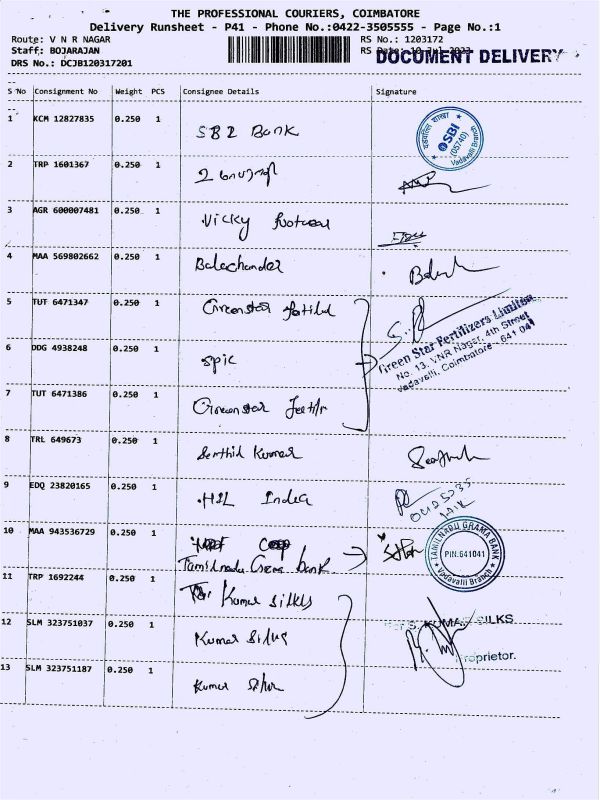 THE PROFESSIONAL COURIERS, COIMBATORE
Delivery Runsheet - P41 - Phone No.:0422-3505555 - Page No.:1
Route: V N R NAGAR RS No.: 1203172
Staff: BOJARAJAN RS Date: 10 Jul 2023
DRS No.: DCJB120317201 DOCUMENT DELIVERY
S No Consignment No Weight PCS Consignee Details Signature
1 KCM 12827835 0.250 1 SBI Bank
SBI
(05740)
Vadavalli Branch
2 TRP 1601367 0.250 1
3 AGR 600007481 0.250 1 Vicky
4 MAA 569802662 0.250 1 Balachander
5 TUT 6471347 0.250 1 Greenstar
Green Star Fertilizers Limited
No. 13, VNR Nagar, 4th Street
Vadavalli, Coimbatore - 641 041
6 DDG 4938248 0.250 1 spic
7 TUT 6471386 0.250 1 Greenstar
8 TRL 649673 0.250 1 Kumar
9 EDQ 23820165 0.250 1 HIL India
10 MAA 943536729 0.250 1
Tamilnadu Grama bank
TAMILNADU GRAMA BANK
PIN.641041
Vadavalli Branch
11 TRP 1692244 0.250 1 Kumar silks
12 SLM 323751037 0.250 1 Kumar
For S. KUMAR SILKS
Proprietor.
13 SLM 323751187 0.250 1 Kumar